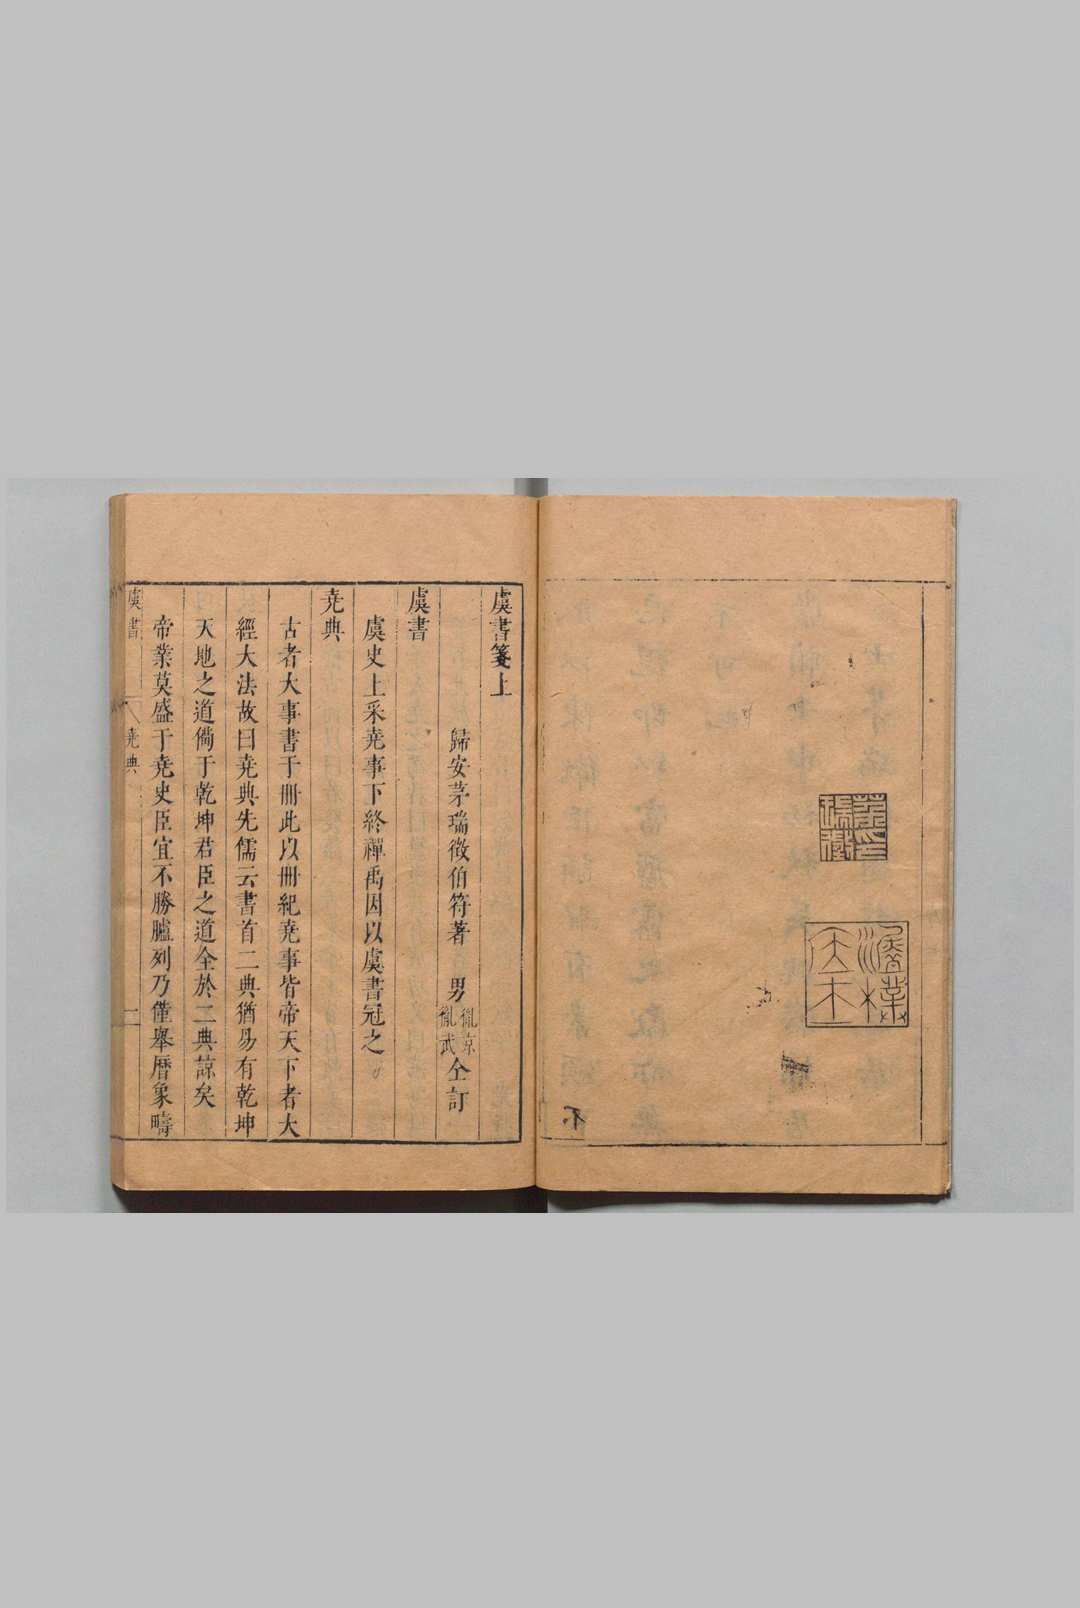 虞書箋上
歸安茅瑞徵伯符著 男胤京胤武仝訂
虞書
虞史上采堯事下終禪禹因以虞書冠之
堯典
古者大事書于冊此以冊紀堯事皆帝天下者大
經大法故曰堯典先儒云書首二典猶易有乾坤
天地之道備于乾坤君臣之道全於二典諒矣
帝業莫盛于堯史臣宜不勝臚列乃僅舉曆象疇
虞書 堯典 一